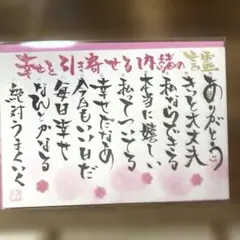 幸せを引き寄せる内緒の言霊
ありがとう
きっと大丈夫
私ならできる
本当に嬉しい
私ってついてる
幸せだなぁ
今日もいい日だ
毎日幸せ
なんとかなる
絶対うまくいく